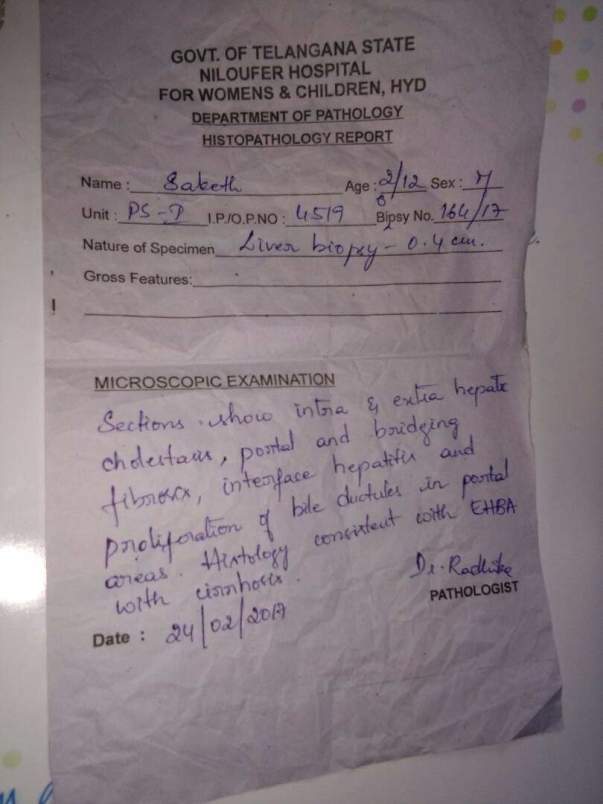 GOVT. OF TELANGANA STATE
NILOUFER HOSPITAL
FOR WOMENS & CHILDREN, HYD
DEPARTMENT OF PATHOLOGY
HISTOPATHOLOGY REPORT
Name : Saketh Age : 2/12 Sex : M
Unit : PS-I I.P./O.P.NO : 4519 Bipsy No. 164/17
Nature of Specimen Liver biopsy - 0.4 cm.
Gross Features:
MICROSCOPIC EXAMINATION
Sections show intra & extra hepatic
cholestasis, portal and bridging
fibrosis, interface hepatitis and
proliferation of bile ductules in portal
areas. Histology consistent with EHBA
with cirrhosis.
Dr. Radhika
PATHOLOGIST
Date : 24/02/2017